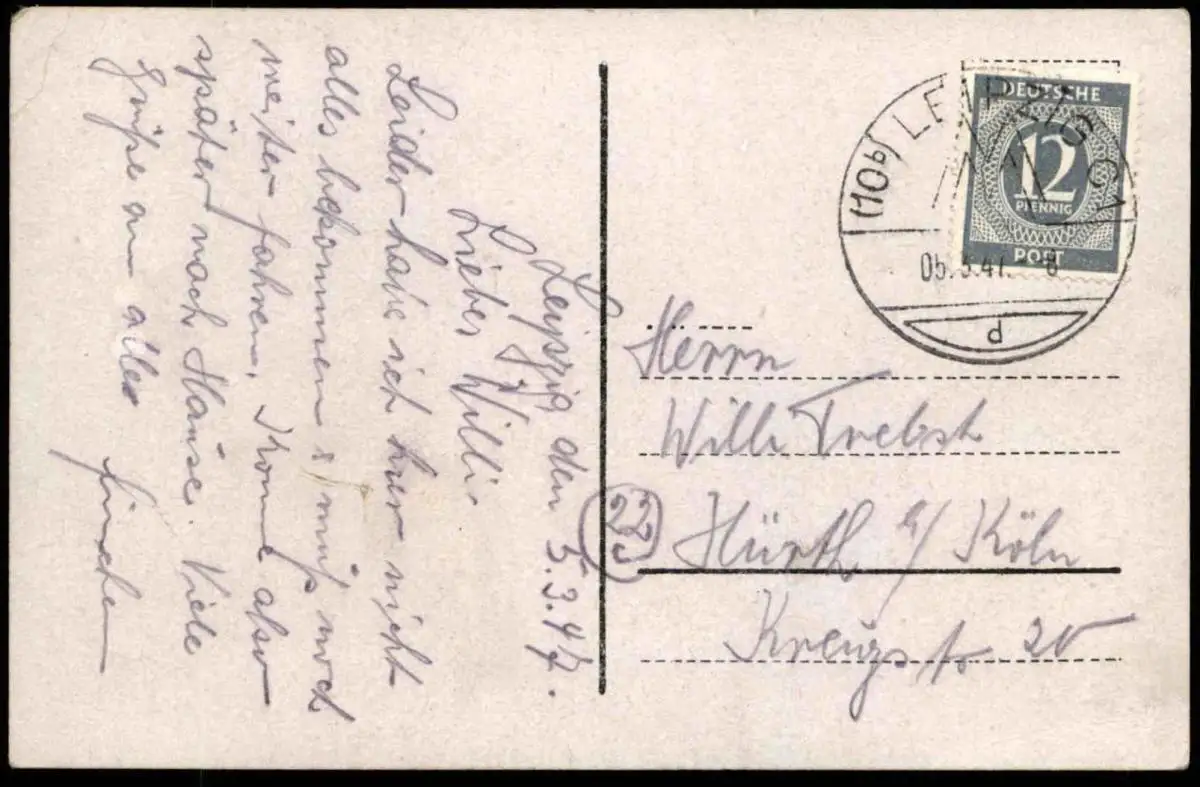 Leipzig den 5.3.47.
Lieber Willi.
Leider habe ich hier nicht
alles bekommen u. muß noch
weiter fahren. Kome also
später nach Hause. Viele
Grüße an alle
(10b) LEIPZIG
05.3.47. 8
d
DEUTSCHE
12
PFENNIG
POST
Herrn
Willi Trebst
(22c) Hürth b/ Köln
Kreuzstr. 20